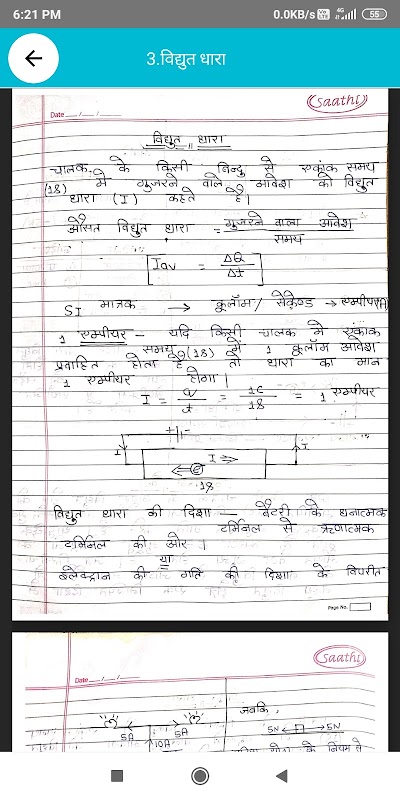 6:21 PM 0.0KB/s 4G 55
3.विद्युत धारा
Saathi
Date __/__/__
विद्युत धारा
चालक के किसी बिन्दु से एकांक समय
(1s) में गुजरने वाले आवेश को विद्युत
धारा (I) कहते हैं।
औसत विद्युत धारा = गुजरने वाला आवेश
समय
Iav = ΔQ
Δt
SI मात्रक → कूलॉम/सेकेण्ड → एम्पीयर(A)
1 एम्पीयर – यदि किसी चालक में एकांक
समय (1s) में 1 कूलॉम आवेश
प्रवाहित होता है तो धारा का मान
1 एम्पीयर होगा।
I = Q/t = 1C/1s = 1 एम्पीयर
I I
I ⇒
e
1s
विद्युत धारा की दिशा – बैटरी के धनात्मक
टर्मिनल से ऋणात्मक
टर्मिनल की ओर।
या
इलेक्ट्रान की गति की दिशा के विपरीत
Page No.
Saathi
Date __/__/__
जबकि,
5A 5A
10A
5N 5N
के नियम से